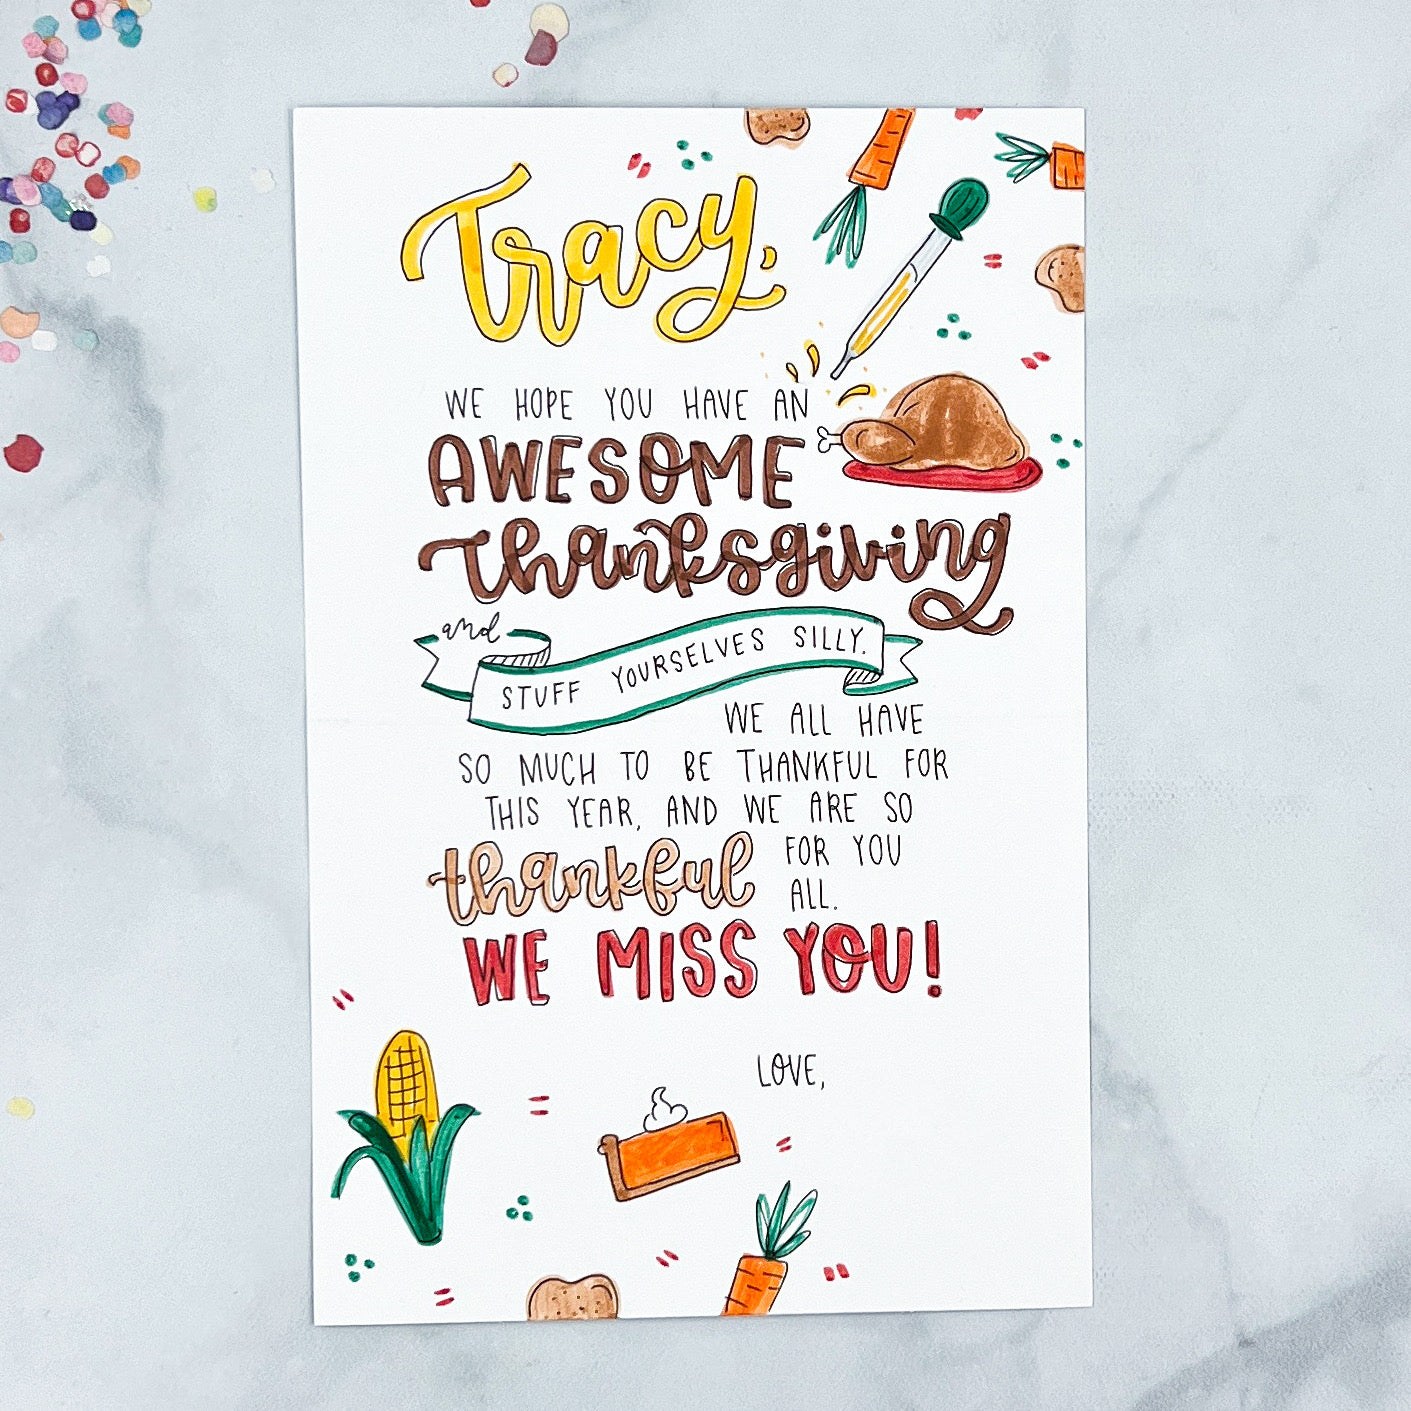 Tracy,
WE HOPE YOU HAVE AN
AWESOME
Thanksgiving
and
STUFF YOURSELVES SILLY.
WE ALL HAVE
SO MUCH TO BE THANKFUL FOR
THIS YEAR, AND WE ARE SO
thankful FOR YOU
ALL.
WE MISS YOU!
LOVE,